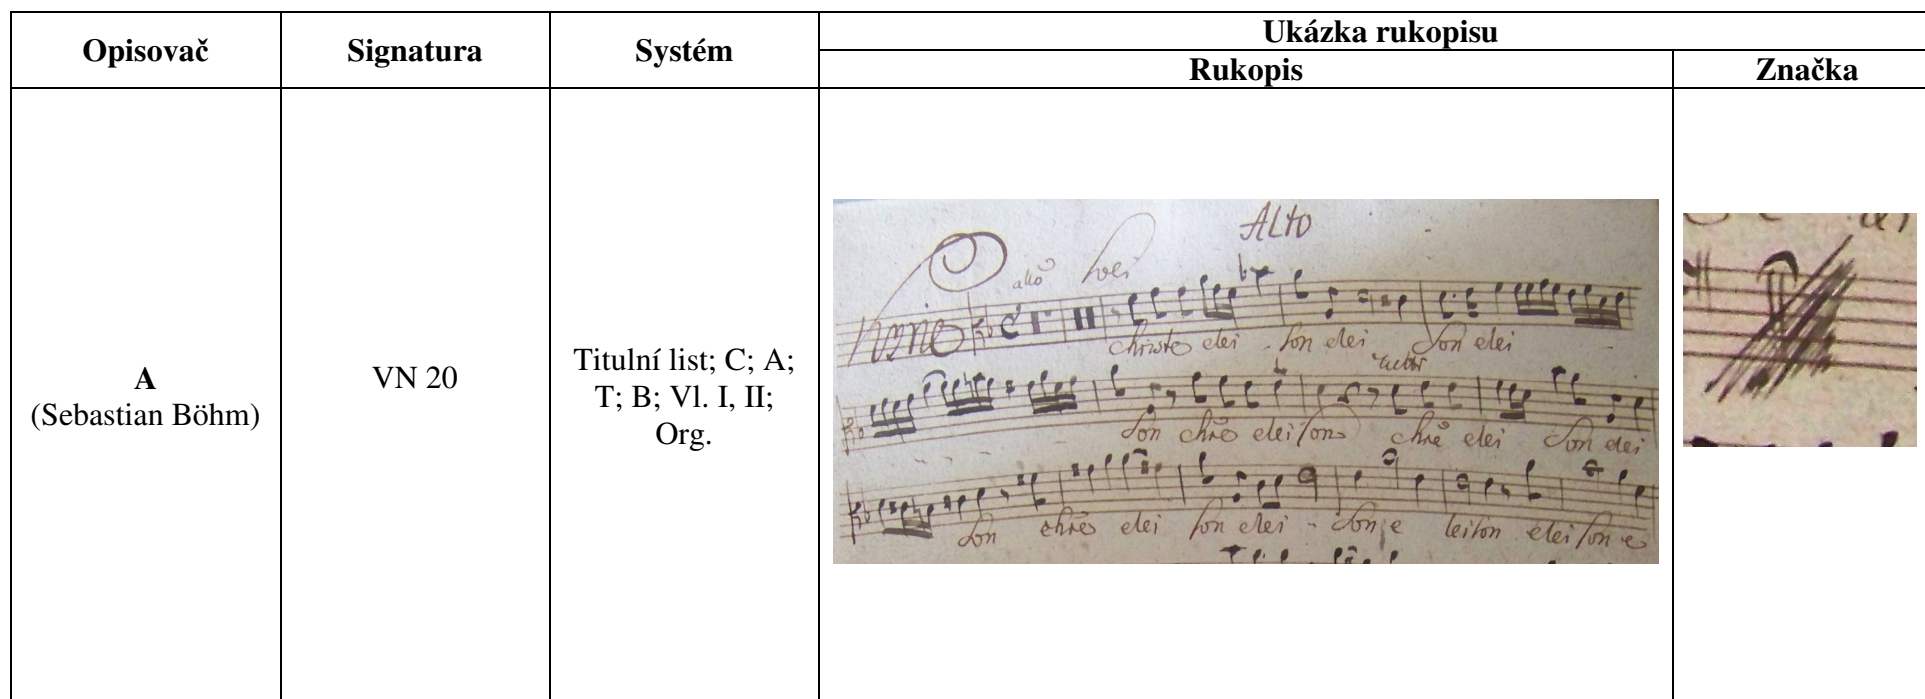 Opisovač Signatura Systém Ukázka rukopisu
Rukopis Značka
A
(Sebastian Böhm)
VN 20
Titulní list; C; A;
T; B; Vl. I, II;
Org.
Alto
allo
christe elei son elei son elei
son chre elei son chre elei son elei
son chre elei son elei son e leison elei son e